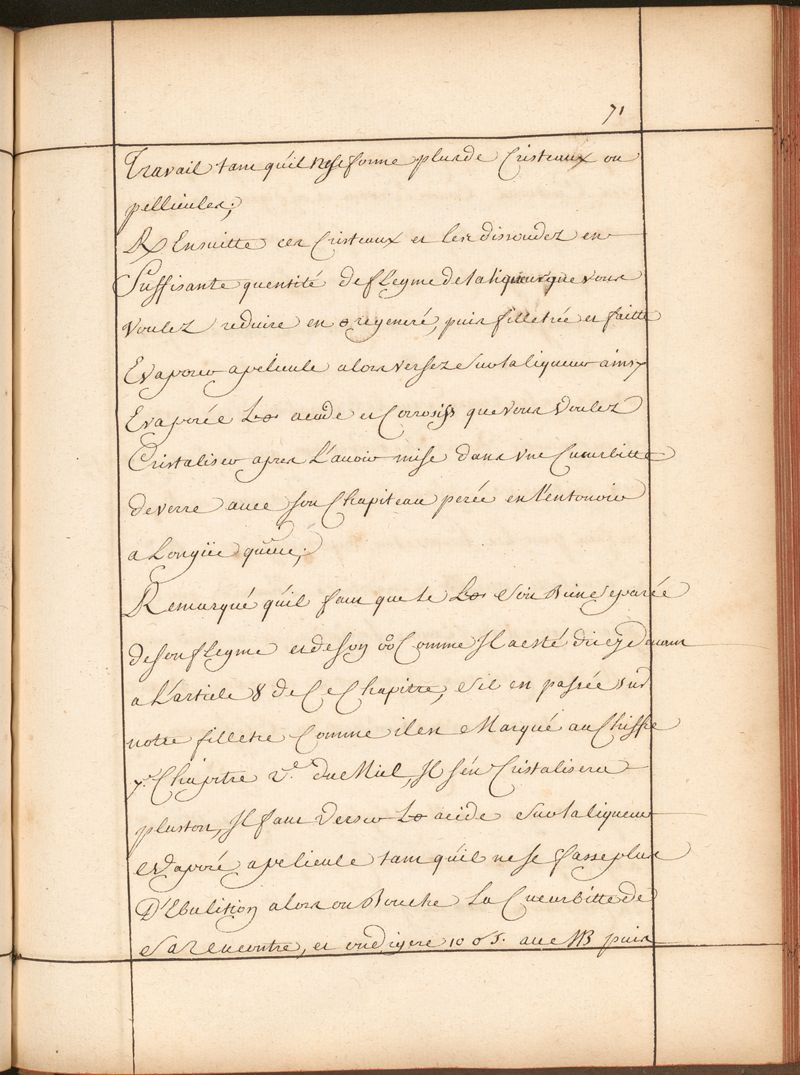 71
Travail tant qu'il ne se forme plus de Cristeaux ou
pellicules;
R Ensuitte ces Cristeaux et les dissoudez en
Suffisante quentité de flegme de la liqueur que vous
voulez reduire en regeneré, puis filletrée et faitte
Evaporer apelicule alors versez sur la liqueur ainsy
Evaporée acide et Corrosifs que vous voulez
Cristaliser apres L'avoir mise dans vne Cucurbitte
de verre avec son Chapiteau percé en l'entonoir
a Longüe queüe;
Remarqué qu'il faut que le soit Bien Separée
de son flegme et de son Comme Il a esté dit cy devant
a L'article 8 de Ce Chapitre, s'il en passée sur
notre filletre Comme il est Marqué au Chiffre
7. Chapitre 2.e du Miel, Il s'en Cristalisera
plustost, Il faut verser acide sur la liqueur
evaporé apelicule tant qu'il ne se fasse plus
D'Ebulition alors on Bouche La Cucurbitte de
Sa Rencontre, et on digere 10 avec MB puis